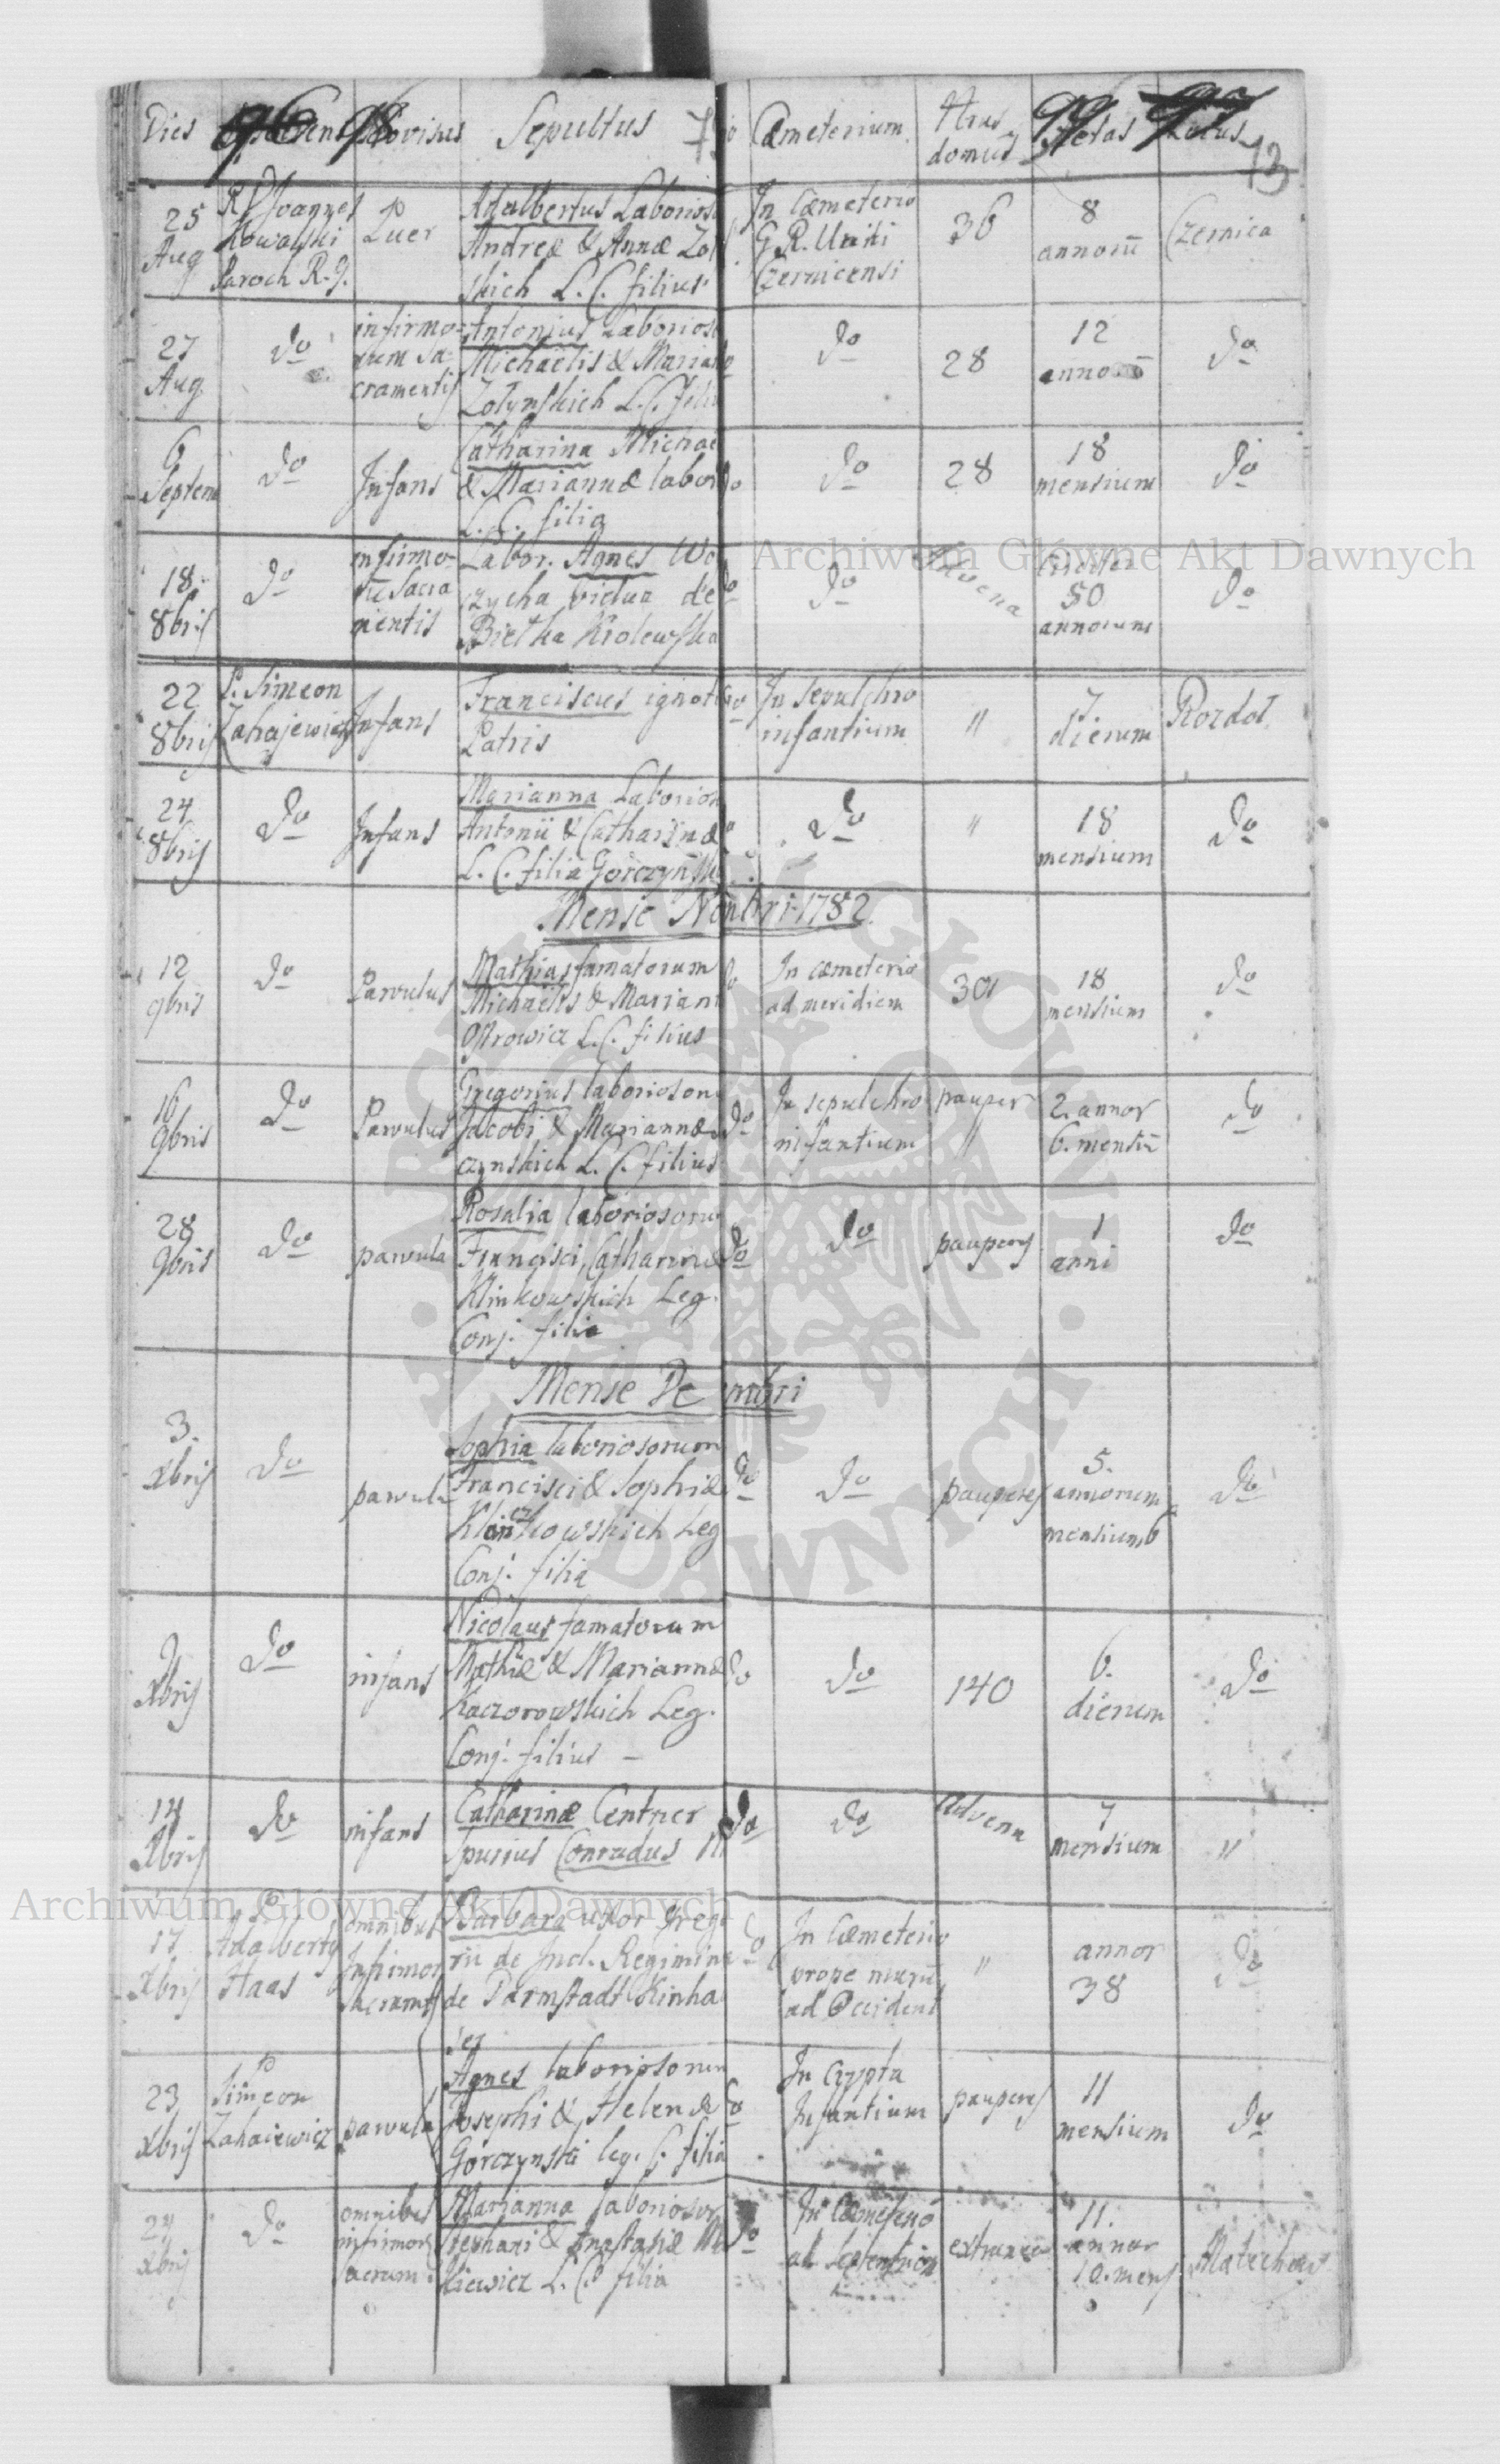 Dies Provisus Sepultus Cæmeterium Nrus domus Aetas Locus
73
25 Aug
R. D. Joannes
Kowalski
Paroch R. G.
Puer
Adalbertus Laborios
Andreæ & Annæ Zol
skich L. C. filius
In Cæmeterio
G. R. Uniti
Czernicensi
36
8
annorū
Czernica
27
Aug
do
infirmo-
rum Sa-
cramentis
Antonius Laborios
Michaelis & Marian
Zolynskich L. C. fili
do
28
12
anno
do
6
Septem
do
Infans
Catharina Michae
& Mariannæ labor
L. C. filia
do
do
28
18
mensium
do
18
8bris
do
infirmo-
rū Sacra
mentis
Labor. Agnes Wo
czycha vidua de
Bietka Krolewska
do
do
Advena
Circiter
50
annorum
do
22
8bris
P. Simeon
Zahajewicz
Infans
Franciscus ignoti
Patris
do
In Sepulchro
infantium
"
7
dierum
Rozdol
24
8bris
do
Infans
Marianna Laborios
Antonii & Catharinæ
L. C. filia Gorczynsk
do
"
18
mensium
do
Mense Nov bri 1782
12
9bris
do
Parvulus
Mathias famatorum
Michaelis & Mariann
Ostrowicz L. C. filius
do
In cæmeterio
ad meridiem
301
18
mensium
do
16
9bris
do
Parvulus
Gregorius laborioson
Jacobi & Mariannæ
czynskich L. C. filius
do
In sepulchro
infantium
pauper
"
2. annor
6. mensiū
do
28
9bris
do
parvula
Rosalia laboriosoru
Francisci, Catharinæ
Klinkowskich Leg.
Conj. filia
do
do
pauperes
1
anni
do
Mense De mbri
3.
Xbris
do
parvula
Sophia laboriosorum
Francisci & Sophiæ
kowskich Leg
Conj. filia
do
do
pauperes
5.
annorum
mensium 6
do
9
Xbris
do
infans
Nicolaus famatorum
Mathiæ & Mariannæ
Kaczorowskich Leg.
Conj. filius –
do
do
140
6.
dierum
do
14
Xbris
do
infans
Catharinæ Centner
Spurius Conradus Ill
do
do
advena
7
mensium
"
17
Xbris
P
Adalbertus
Haas
omnibus
Infirmor
Sacramts
Barbara uxor Grego
rii de Incl. Regimine
de Darmstadt Kinha
ser
do
In Cæmeterio
prope murū
ad Occident
"
annor
38
do
23
Xbris
P
Simeon
Zahaiewicz
parvula
Agnes laboriosorum
Josephi & Helenæ
Gorczynski leg. C. filia
do
In Crypta
Infantium
pauperes
11
mensium
do
24
Xbris
do
omnibus
infirmor
Sacram.
Marianna laboriosor
Stephani & Anastasiæ
kiewicz L. C. filia
do
In Cæmeterio
ad Septentrion
extranea
11.
annor
10. mens
Archiwum Główne Akt Dawnych
Archiwum Główne Akt Dawnych
ARCHIWUM GŁÓWNE AKT DAWNYCH